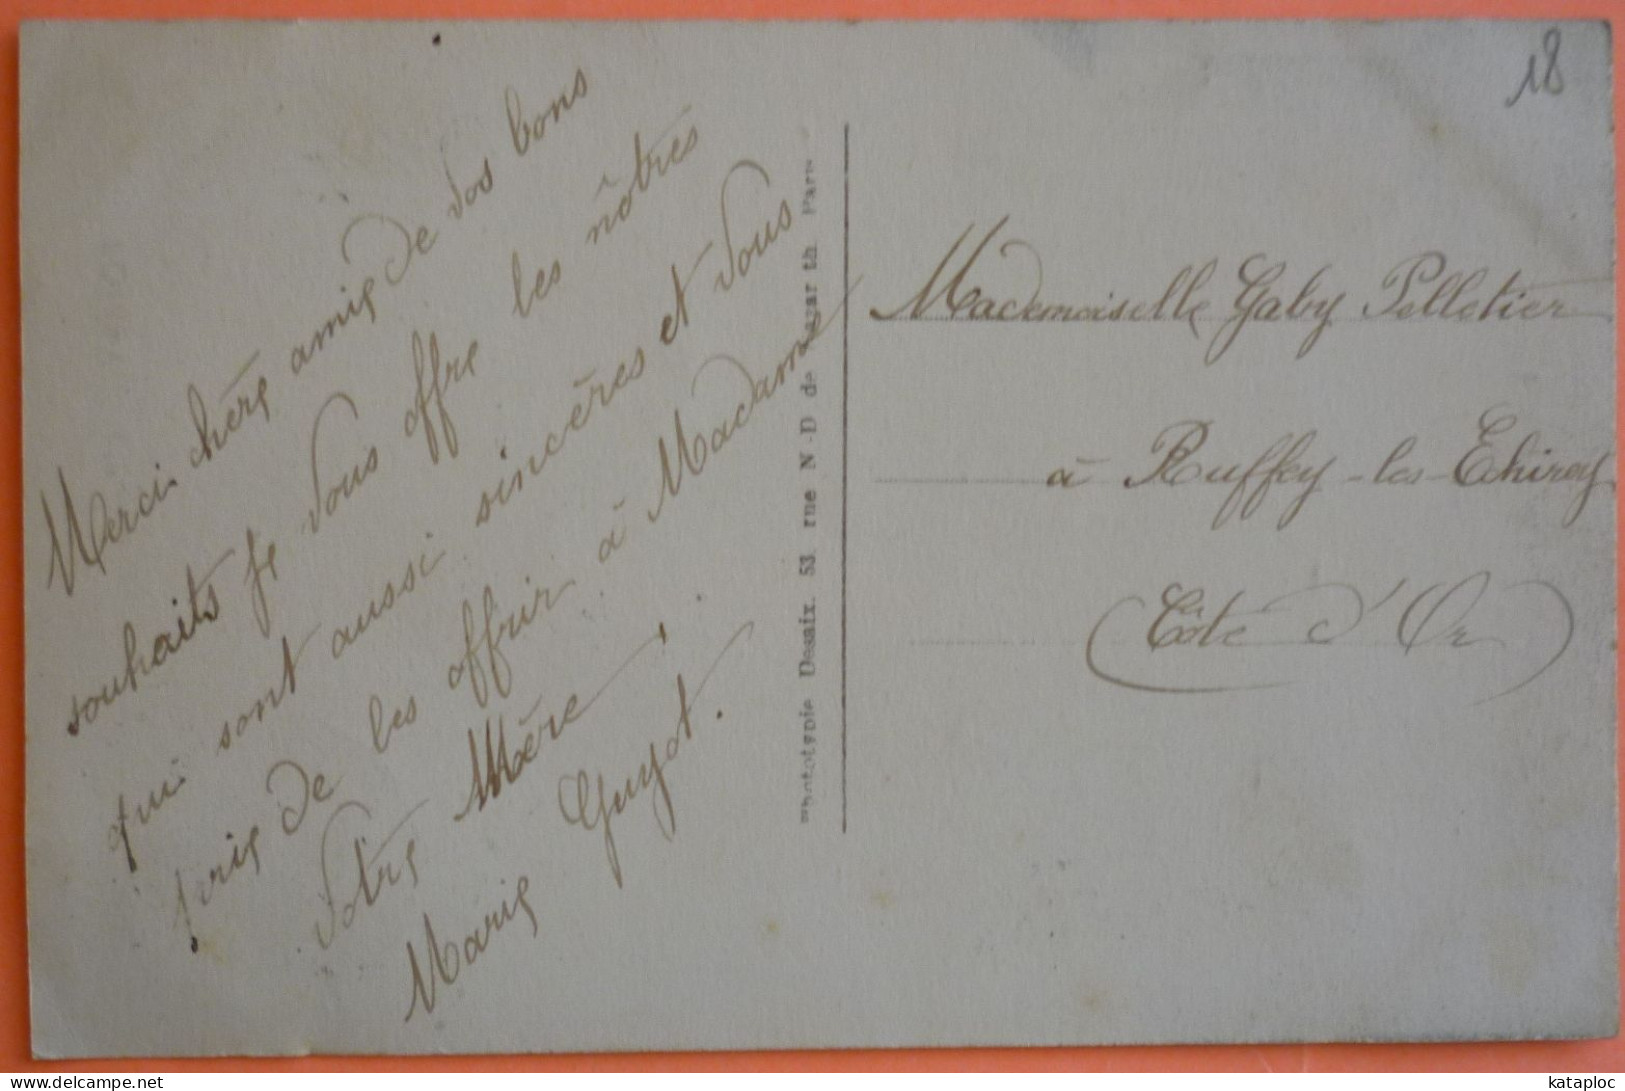 Merci chère amie de vos bons
souhaits je vous offre les nôtres
qui sont aussi sincères et vous
prie de les offrir à Madame
votre Mère,
Marie Guyot.
Phototypie Desaix. 53. rue N-D de Nazareth Paris
18
Mademoiselle Gaby Pelletier
à Ruffey-les-Echirey
Côte d'Or
Delcampe.net
kataploc